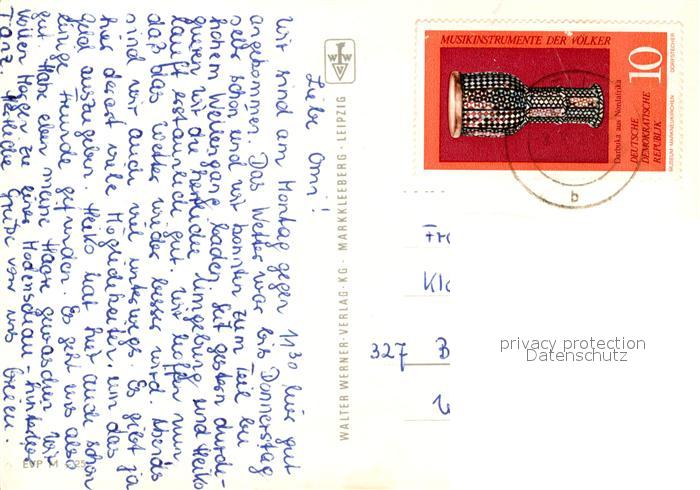 Liebe Omi!
Wir sind am Montag gegen 11.30 hier gut
angekommen. Das Wetter war bis Donnerstag
sehr schön und wir konnten zum Teil bei
hohem Wellengang baden. Seit gestern durch-
queren wir die herrliche Umgebung und Heiko
läuft erstaunlich gut. Wir hoffen nun
daß das Wetter wieder besser wird. Abends
sind wir auch viel unterwegs. Es gibt ja
hier derart viele Möglichkeiten um das
Geld auszugeben. Heiko hat hier auch schon
einige Freunde gefunden. Es geht uns also
gut. Habe eben meine Haare gewaschen. Wir
wollen Morgen zu einer Modenschau - hinterher
Tanz. Herzliche Grüße von uns
WALTER WERNER-VERLAG-KG · MARKKLEEBERG - LEIPZIG
WWV
EVP M -,25
MUSIKINSTRUMENTE DER VÖLKER
10
Darbuka aus Nordafrika
DEUTSCHE
DEMOKRATISCHE
REPUBLIK
MUSEUM MARKNEUKIRCHEN
DORFSTECHER
b
327 B
privacy protection
Datenschutz